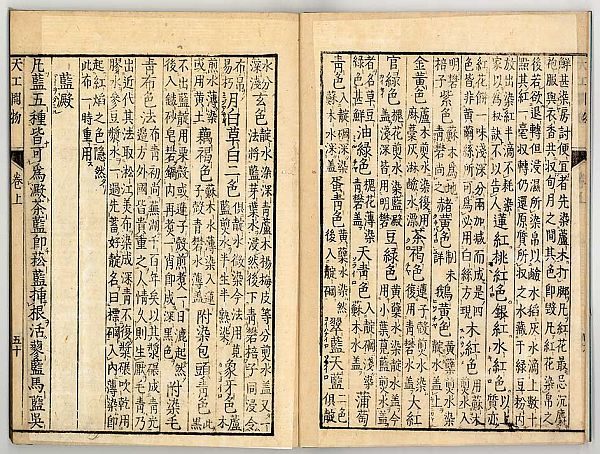 鮮甚染房討便宜者先染蘆木打脚凡紅花最忌沉麝
袍服與衣香共收旬月之間其色即毀凡紅花染帛之
後若欲退轉但浸濕所染帛以鹼水稻灰水滴上數十
點其紅一毫收轉仍還原質所收之水藏于綠豆粉內
放出染紅半滴不耗染
家以爲秘訣不以告人 蓮紅桃紅色銀紅水紅色 以上
質亦
紅花餅一味淺深分兩加減而成是四
色皆非黃繭絲所可爲必用白絲方現 木紅色 用蘇木
煎水入
明礬
棓子 紫色 蘇木爲地
青礬尚之 赭黃色 制未
詳 鵝黃色 黃蘗煎水染
靛水蓋上
金黃色 蘆木煎水染後用
麻藁灰淋鹼水漂 茶褐色 蓮子殼煎水染
後用青礬水蓋 大紅
官綠色 槐花煎水染藍靛
蓋淺深皆用明礬 豆綠色 黃蘗水染靛水蓋今
用小葉莧藍煎水蓋
者名草豆
綠色甚鮮 油綠色 槐花薄染
青礬蓋 天青色 入靛碙淺染
蘇木水蓋 蒲萄
青色 入靛碙深染
蘇木水深蓋 蛋青色 黃蘗水染然
後入靛碙 翠藍天藍 二色
俱靛
水分
深淺 玄色 靛水染深青蘆木楊梅皮等分煎水蓋又一
法將藍芽葉水浸然後下青礬棓子同浸令
布帛
易朽 月白草白二色 俱靛水微染今法用莧
藍煎水半生半熟染 象牙色 蘆木
煎水薄染
或用黃土 藕褐色 蘇木水薄染入蓮
子殼青礬水薄蓋 附染包頭青色 此黑
不出藍靛用栗殼或蓮子殼煎煮一日漉起然
後入鐵砂皂礬鍋內再煮一宵即成深黑色 附染毛
青布色法 布青初尚蕪湖千百年矣以其漿碾成青光
邊方外國皆貴重之人情久則生厭毛青乃
出近代其法取松江美布染成深青不復漿碾吹乾用
膠水參豆漿水一過先蓄好靛名曰標碙入內薄染即
起紅焰之色隱然
此布一時重用
藍澱
凡藍五種皆可爲澱茶藍即菘藍揷根活蓼藍馬藍吳
天工開物
卷上
五十